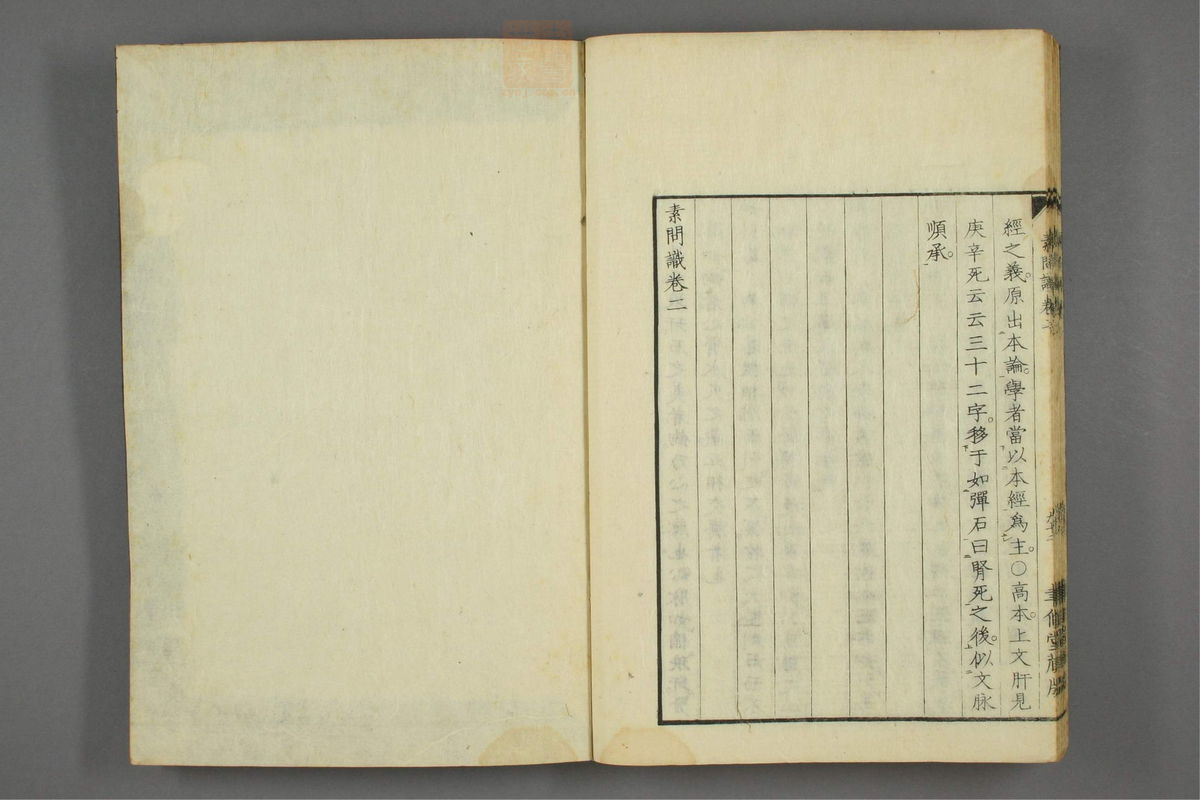 經之義。原出本論。學者當以本經爲主。○高本。上文肝見
庚辛死云云三十二字。移于如彈石曰腎死之後。似文脉
順承。
素問識卷二